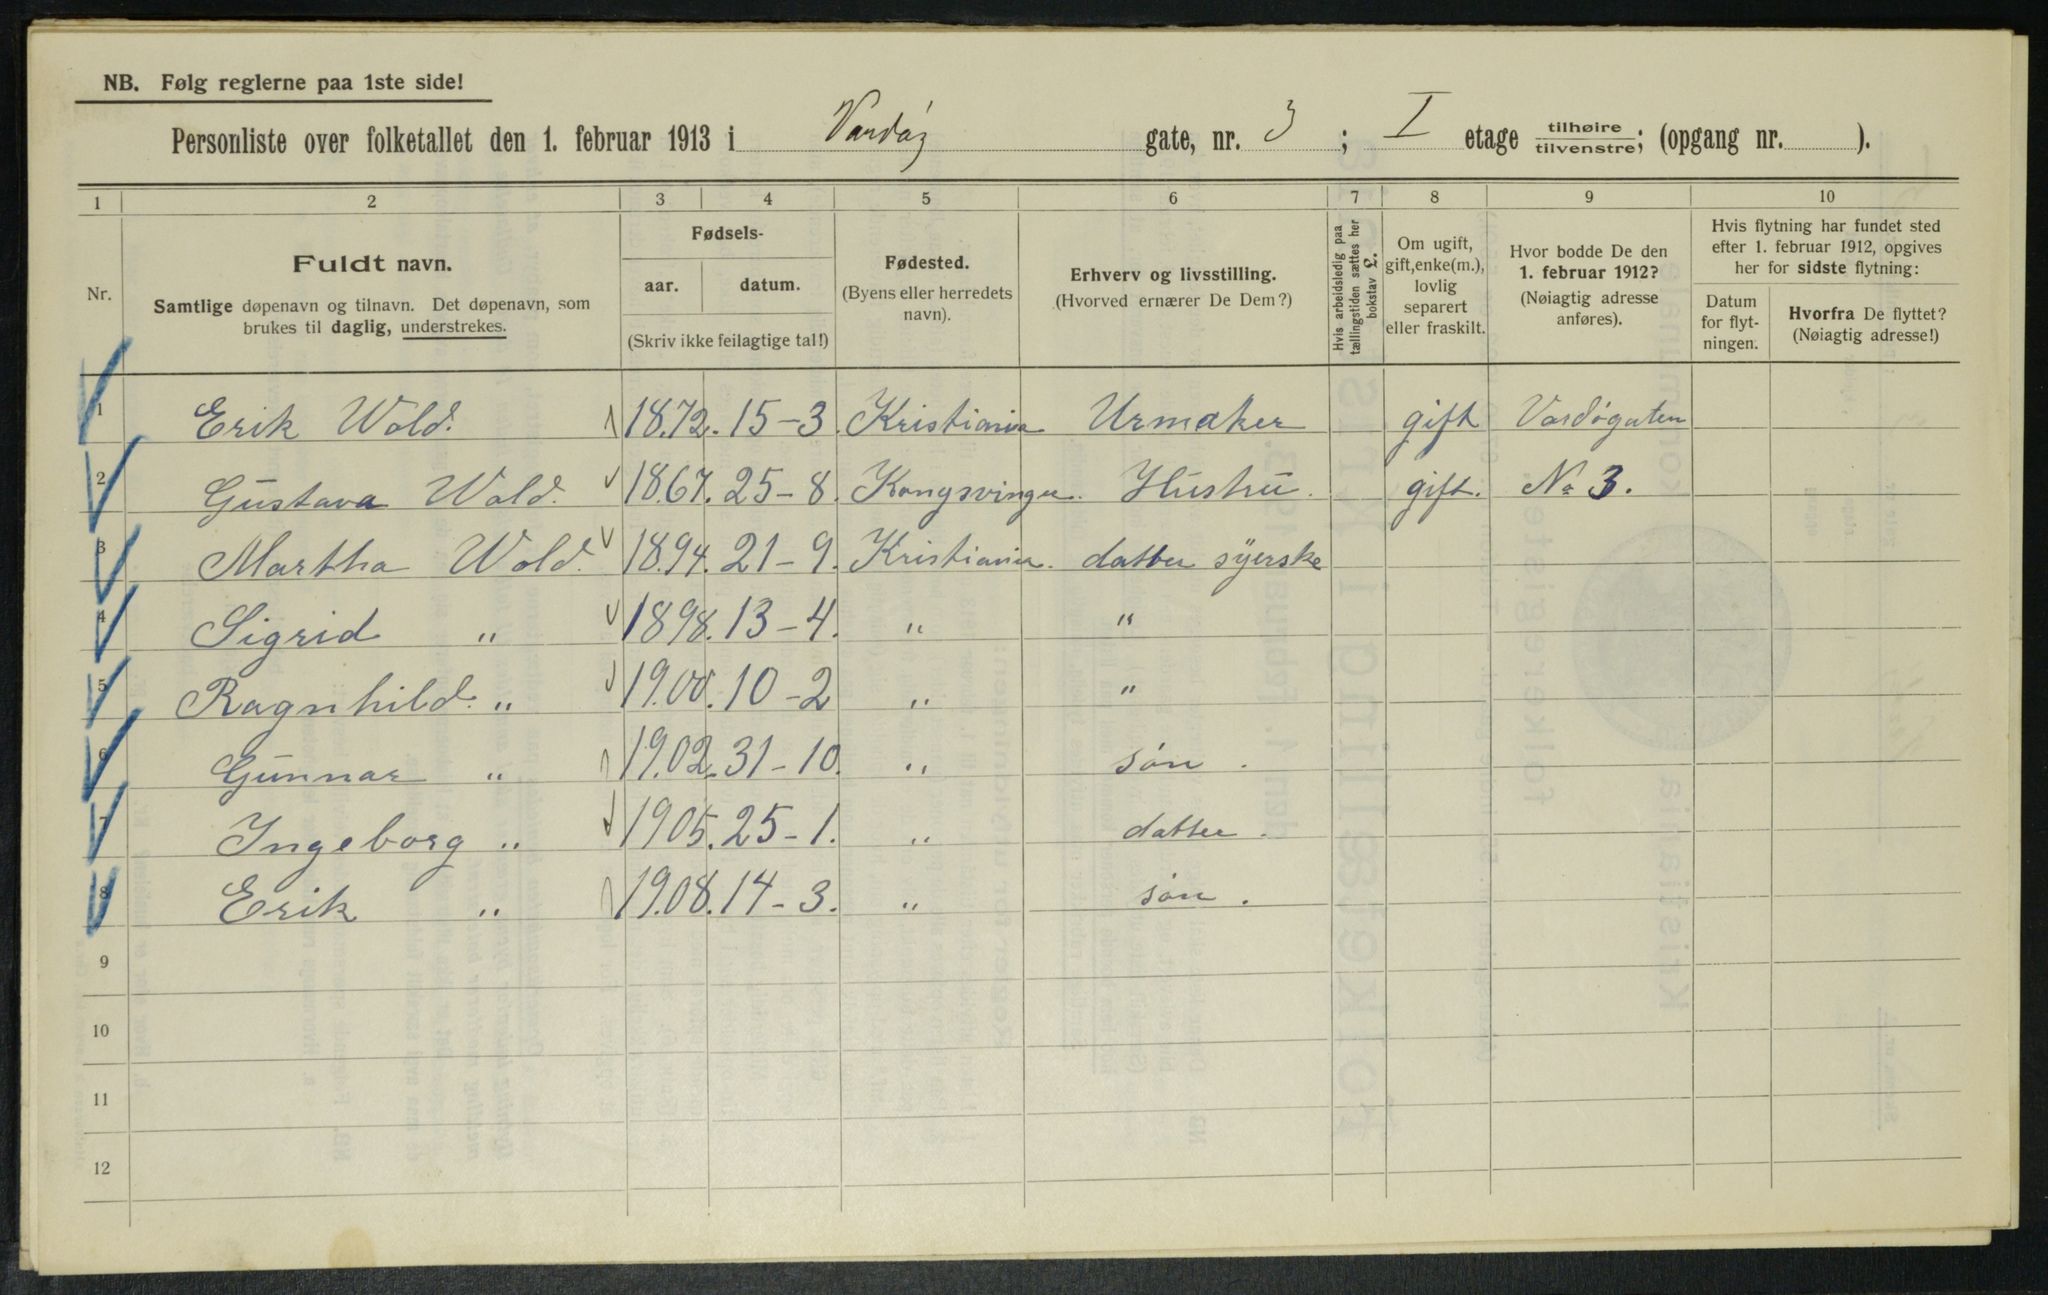 NB. Følg reglerne paa 1ste side!
Personliste over folketallet den 1. februar 1913 i Vardøg gate, nr. 3 ; I etage tilhøire/tilvenstre; (opgang nr. ).
1 2 3 4 5 6 7 8 9 10
Nr.
Fuldt navn.
Samtlige døpenavn og tilnavn. Det døpenavn, som
brukes til daglig, understrekes.
Fødsels-
aar. datum.
(Skriv ikke feilagtige tal!)
Fødested.
(Byens eller herredets
navn).
Erhverv og livsstilling.
(Hvorved ernærer De Dem?)
Hvis arbeidsledig paa
tællingstiden sættes her
bokstav L.
Om ugift,
gift, enke(m.),
lovlig
separert
eller fraskilt.
Hvor bodde De den
1. februar 1912?
(Nøiagtig adresse
anføres).
Hvis flytning har fundet sted
efter 1. februar 1912, opgives
her for sidste flytning:
Datum
for flyt-
ningen.
Hvorfra De flyttet?
(Nøiagtig adresse!)
1 Erik Wold. 1872. 15-3. Kristiania Urmaker gift Vardøgaten
2 Gustava Wold. 1867. 25-8. Kongsvinger. Hustru. gift. No 3.
3 Martha Wold. 1894. 21-9. Kristiania. datter syerske
4 Sigrid " 1898. 13-4. " "
5 Ragnhild. " 1900. 10-2 " "
6 Gunnar " 1902. 31-10. " søn.
7 Ingeborg " 1905. 25-1. " datter.
8 Erik " 1908. 14-3. " søn.
9
10
11
12